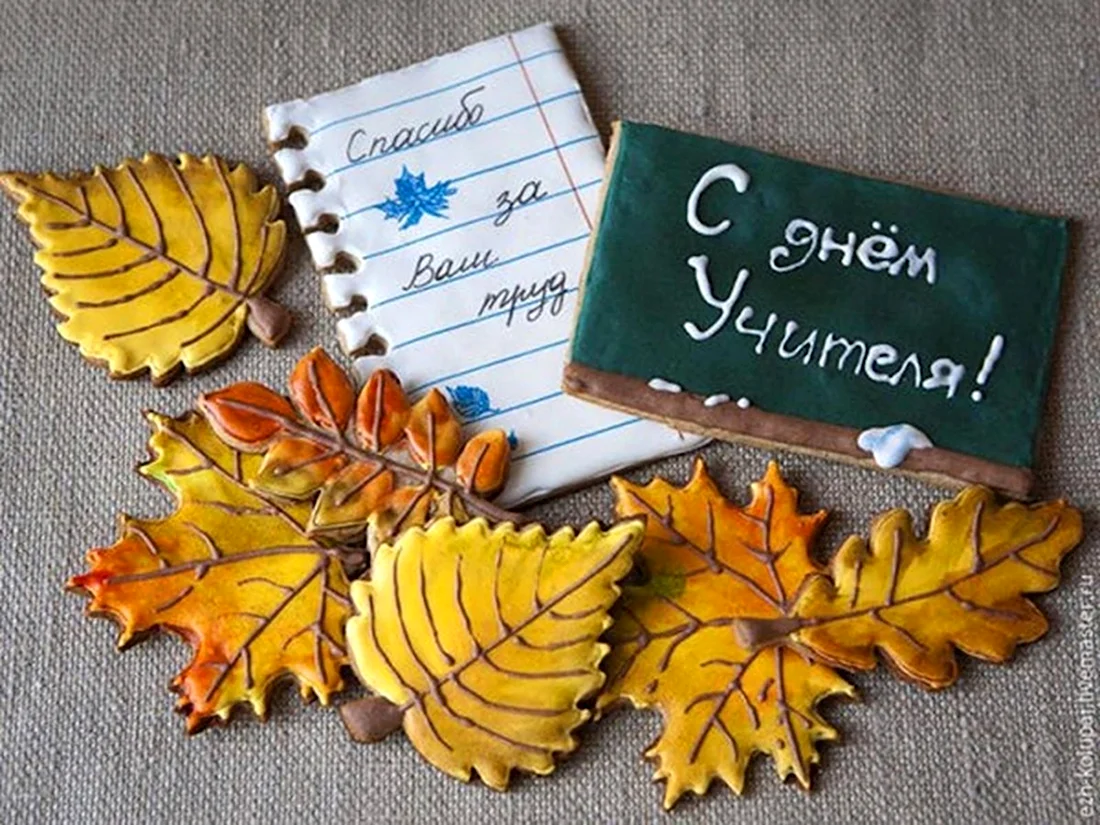 Спасибо
за
Ваш
труд
С днём
Учителя!
ezh-kolupoi.livemaster.ru